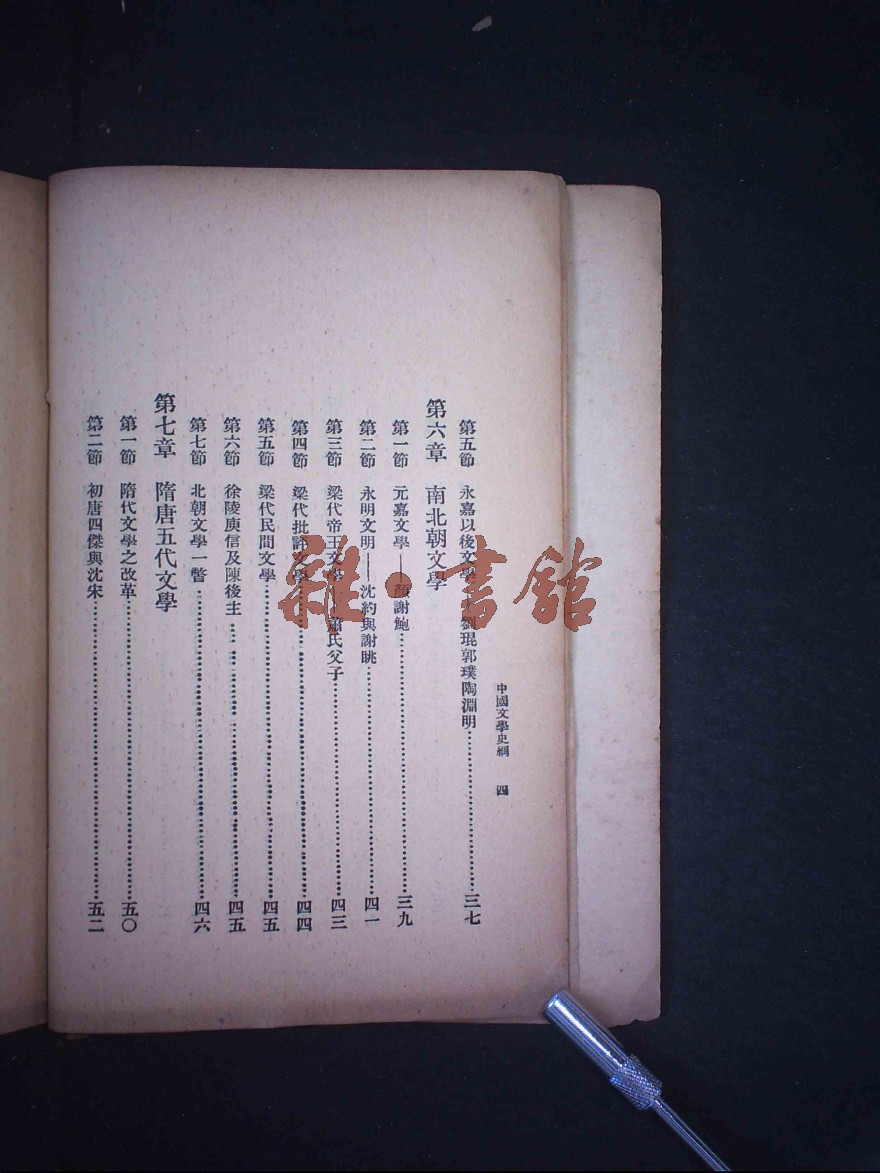 中國文學史綱 四
第五節 永嘉以後文學——劉琨郭璞陶淵明……三七
第六章 南北朝文學
第一節 元嘉文學——顏謝鮑……三九
第二節 永明文明——沈約與謝眺……四一
第三節 梁代帝王文學——蕭氏父子……四三
第四節 梁代批評文學……四四
第五節 梁代民間文學……四五
第六節 徐陵庾信及陳後主……四五
第七節 北朝文學一瞥……四六
第七章 隋唐五代文學
第一節 隋代文學之改革……五〇
第二節 初唐四傑與沈宋……五二
雜·書館